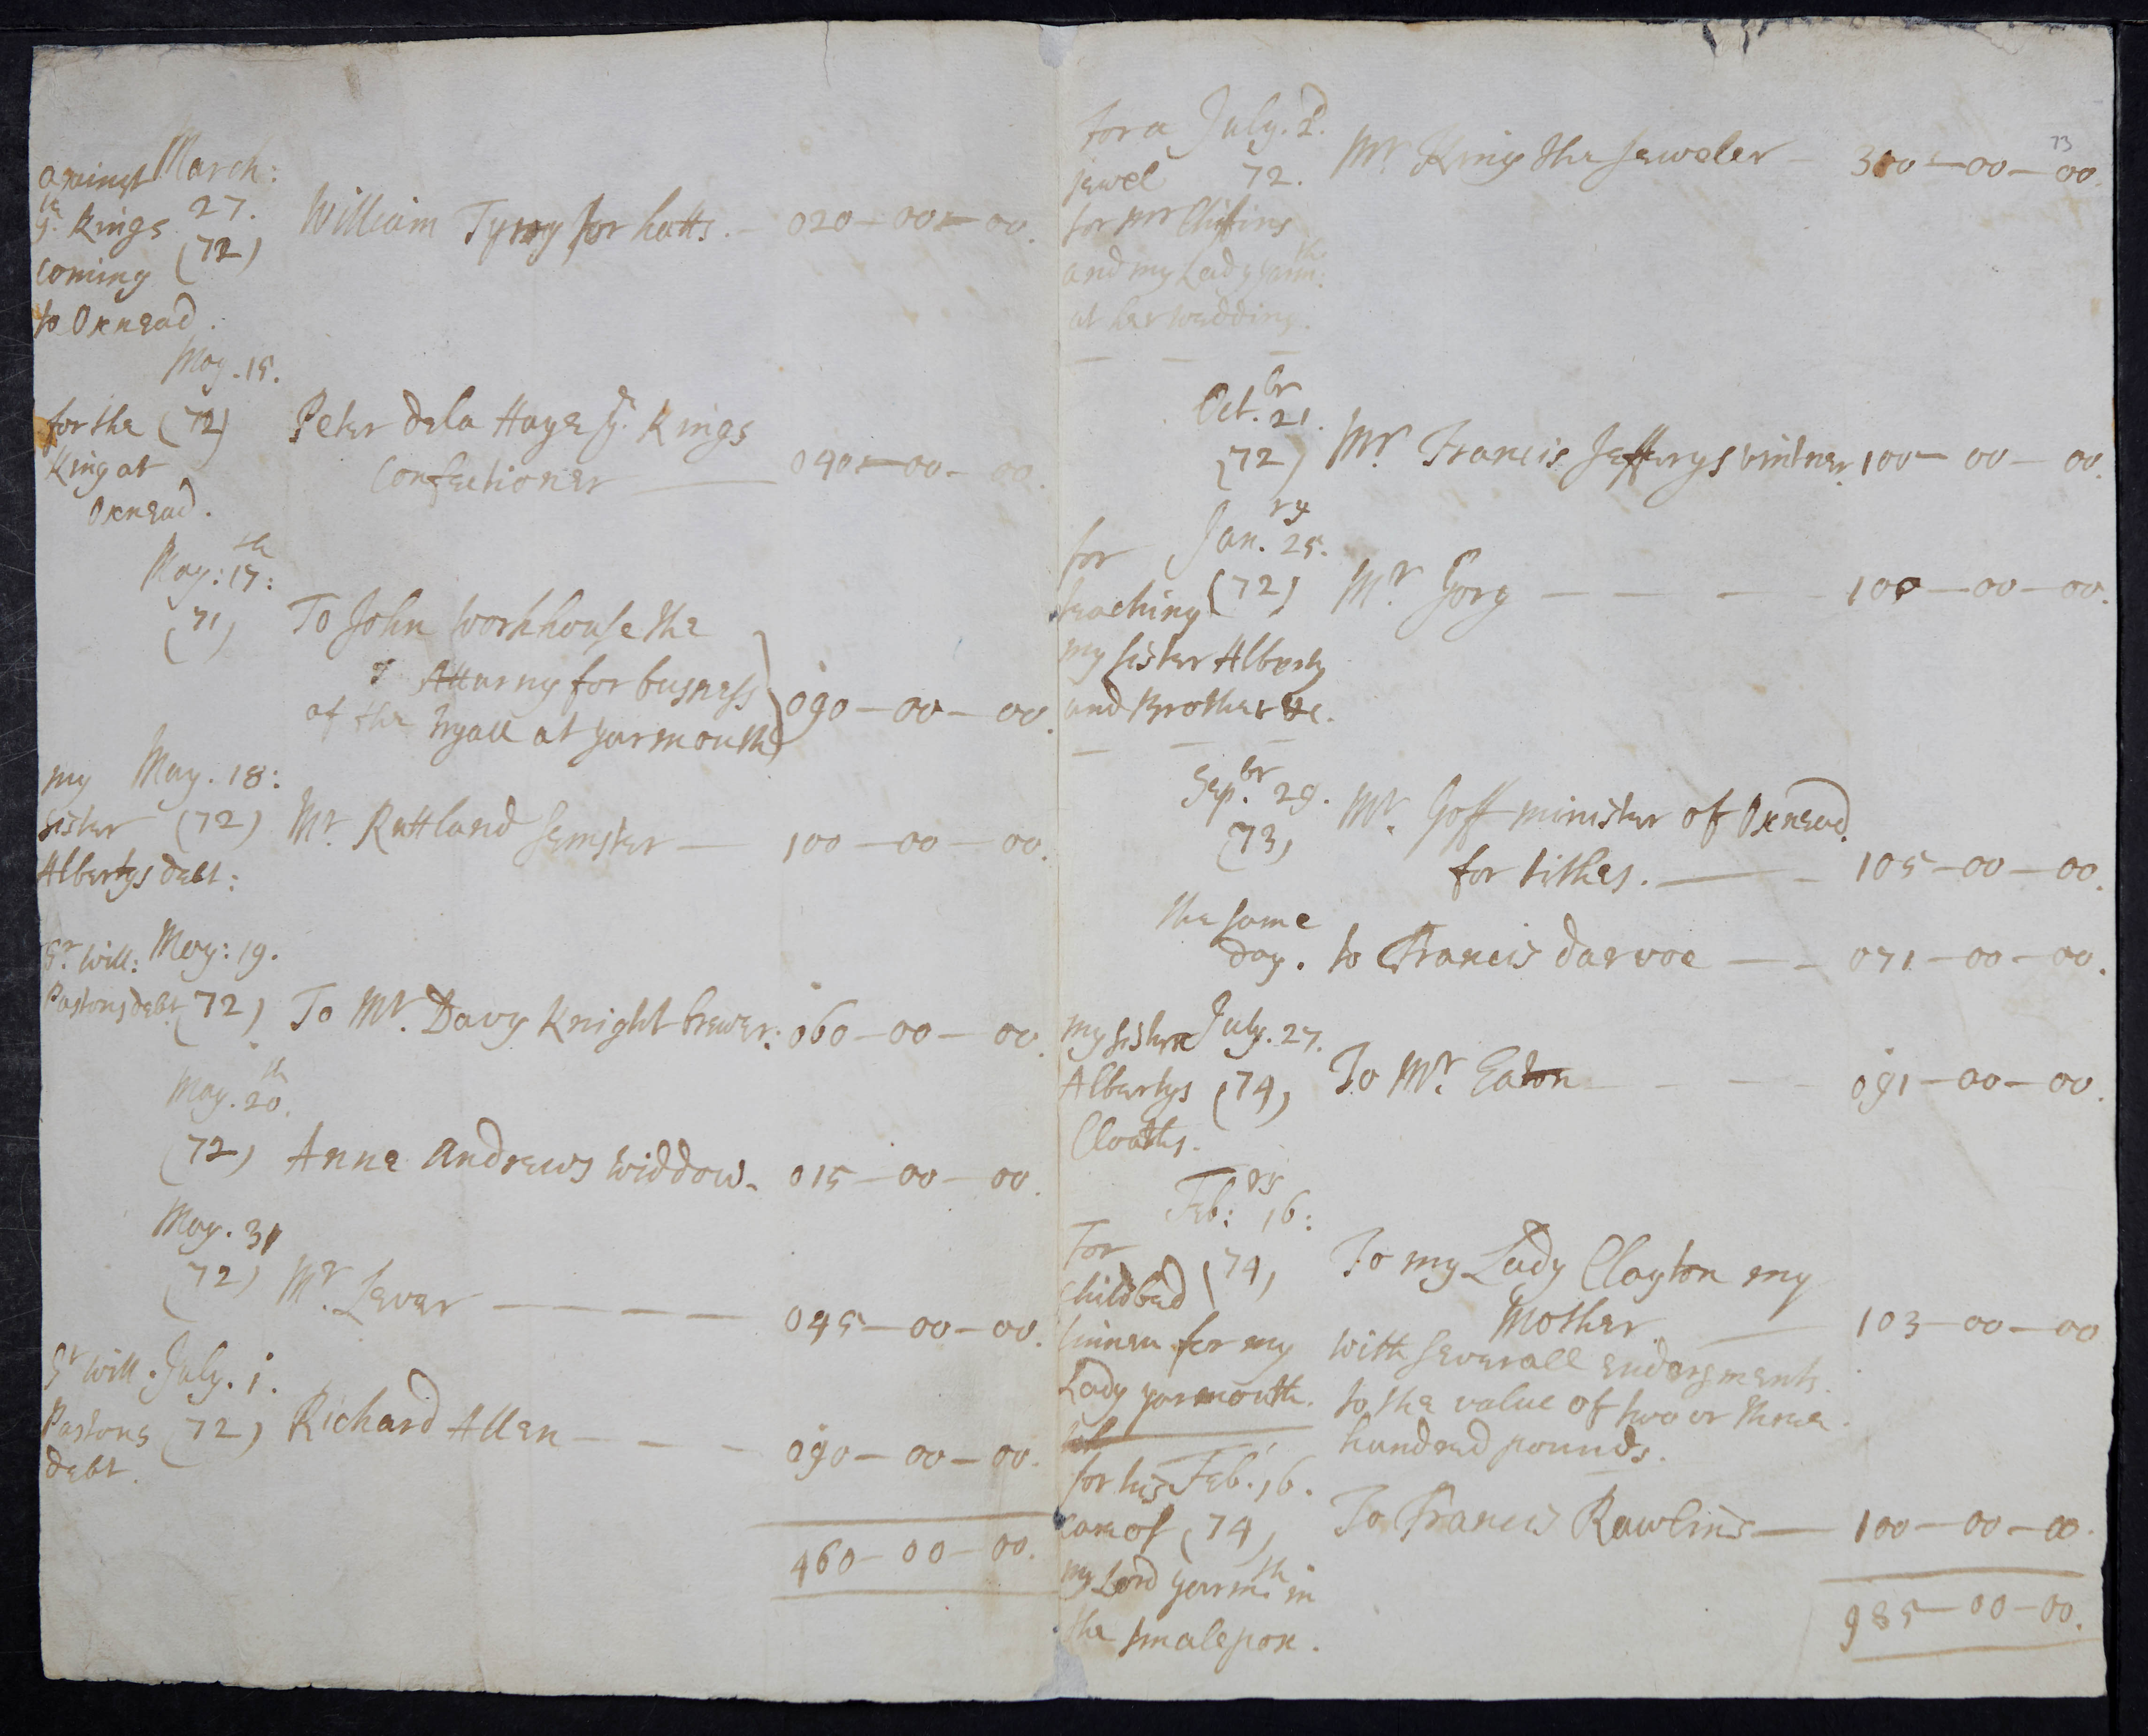 against March:
ye Kings 27.
coming (72)
to Oxnead.
William Tyrry for hatts. — 020—00—00.
May. 15.
for the (72)
King at
Oxnead.
Peter dela Haye ye. Kings
Confectioner —— 040—00—00.
May: 17th:
(71)
To John Workhouse the
Atturny for busness
of the tryall at yarmouth 090—00—00.
my May. 18:
sister (72) Mr. Ruttland Semster — 100—00—00.
Albertys debt:
Sr. Will: May: 19.
Pastons debt (72) To Mr. Davy Knight brewer: 060—00—00.
May. 20th.
(72) Anne Andrews widdow. 015—00—00.
May. 31
(72) Mr. Lever — — — — 045—00—00.
Sr Will. July. 1.
Pastons (72) Richard Allen — — — 090—00—00.
debt.
460—00—00.
73
for a July. 2.
jewel 72. Mr King the Jeweler — 300—00—00.
for Mr Chiffins
and my Lady yarmth:
at her wedding.
Octbr. 21.
(72) Mr. Francis Jefferys vintner. 100—00—00.
for Janry. 25.
teaching (72) Mr. Gorg — — — — 100—00—00.
my sister Alberty
and Brother &c.
Sepbr. 29. Mr. Goff minister of Oxnead.
(73) for tithes. —— 105—00—00.
the same
day. to Francis darvoe — — 071—00—00.
my sister July. 27.
Albertys (74) To Mr. Eaton — — — 091—00—00.
Cloaths.
Febry: 16:
For
Childbed (74) To my Lady Clayton my
Mother. —— 103—00—00
linnen for my with severall endorsments.
Lady yarmouth. to the value of two or three
hundred pounds.
for his Feb. 16.
care of (74) To Francis Rawlins — 100—00—00.
my Lord yarmth. in
the smale pox.
985—00—00.